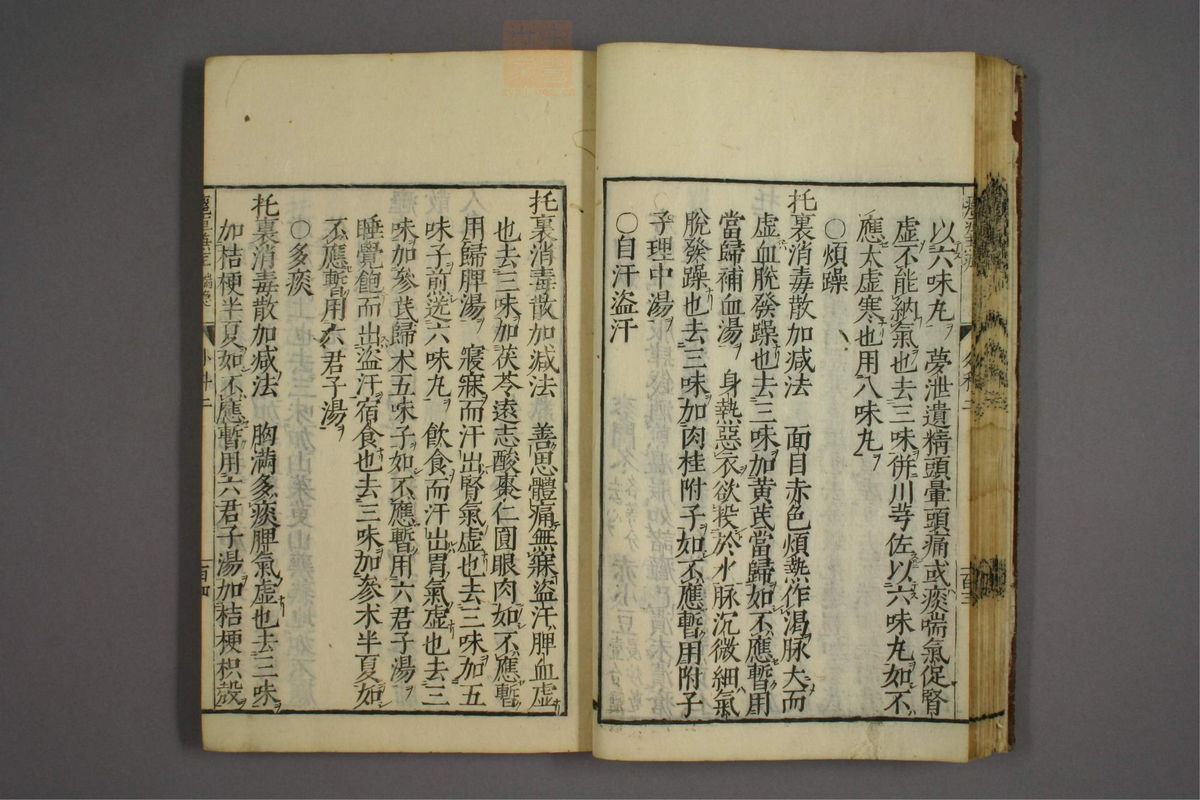 以六味丸 夢泄遺精頭暈頭痛或痰喘氣促腎
虛不能納氣也去三味併川芎佐以六味丸如不
應太虛寒也用八味丸
〇煩躁
托裏消毒散加減法 面目赤色煩熱作渴脉大而
虛血脫發躁也去三味加黄芪當歸如不應暫用
當歸補血湯 身熱惡衣欲投於水脉沉微細氣
脫發躁也去三味加肉桂附子如不應暫用附子
子理中湯
〇自汗盜汗
托裏消毒散加減法 善思體痛無寐盜汗脾血虛
也去三味加茯苓遠志酸棗仁圓眼肉如不應暫
用歸脾湯 寢寐而汗出腎氣虛也去三味加五
味子煎送六味丸 飲食而汗出胃氣虛也去三
味加參芪歸术五味子如不應暫用六君子湯
睡覺飽而出盜汗宿食也去三味加參术半夏如
不應暫用六君子湯
〇多痰
托裏消毒散加减法 胸滿多痰脾氣虛也去三味
加桔梗半夏如不應暫用六君子湯加桔梗枳殼
百四